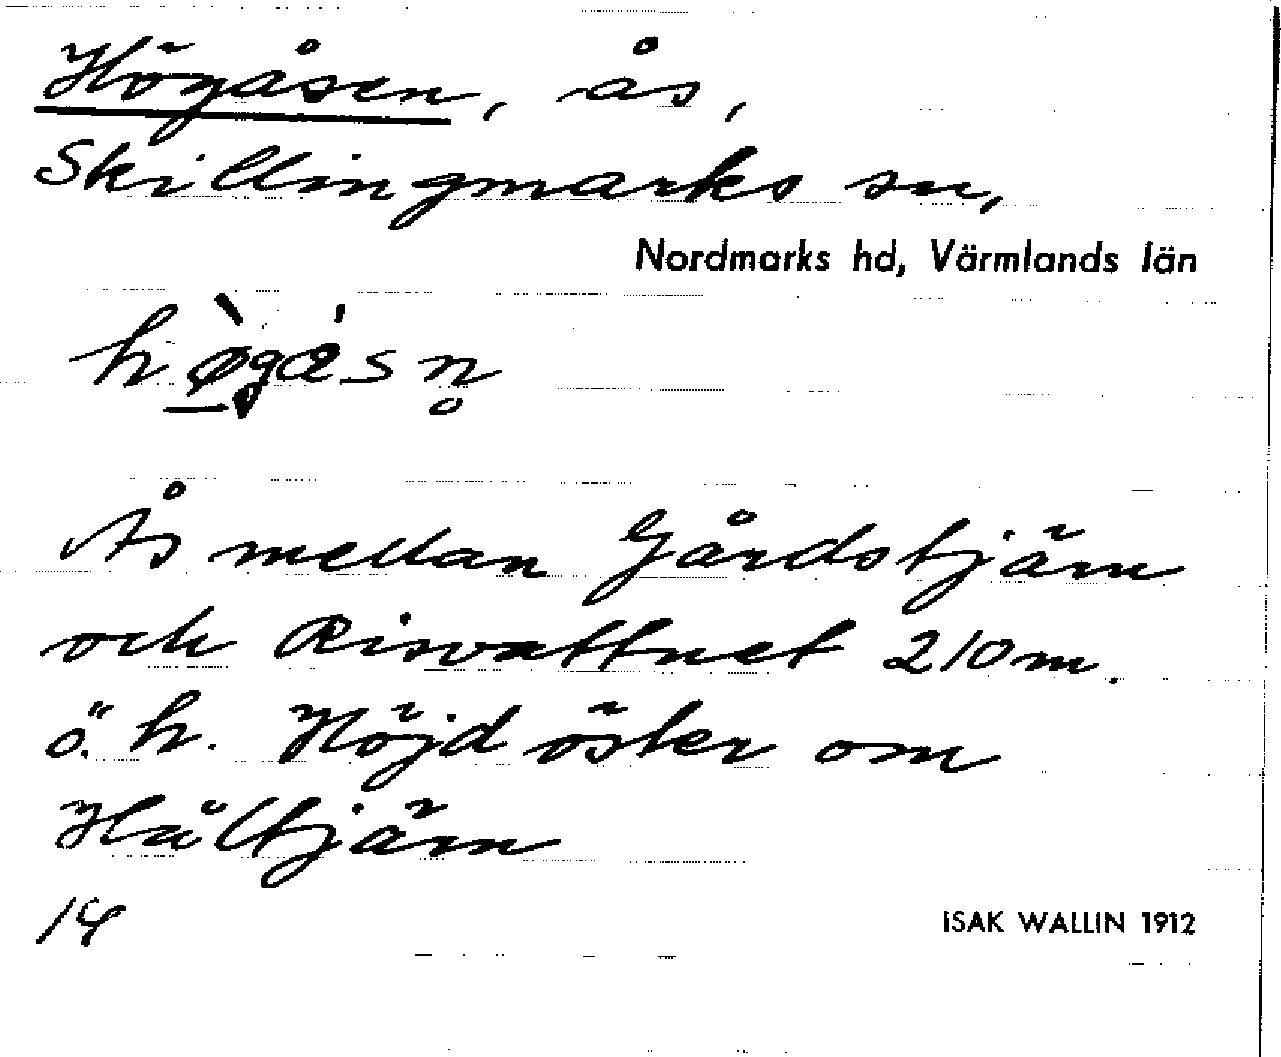 Högåsen, ås,
Skillingmarks sn,
Nordmarks hd, Värmlands län
hø̀gåsn̥
Ås mellan Gårdstjärn
och Risvattnet 210 m.
ö. h. Höjd öster om
Håltjärn
14
ISAK WALLIN 1912